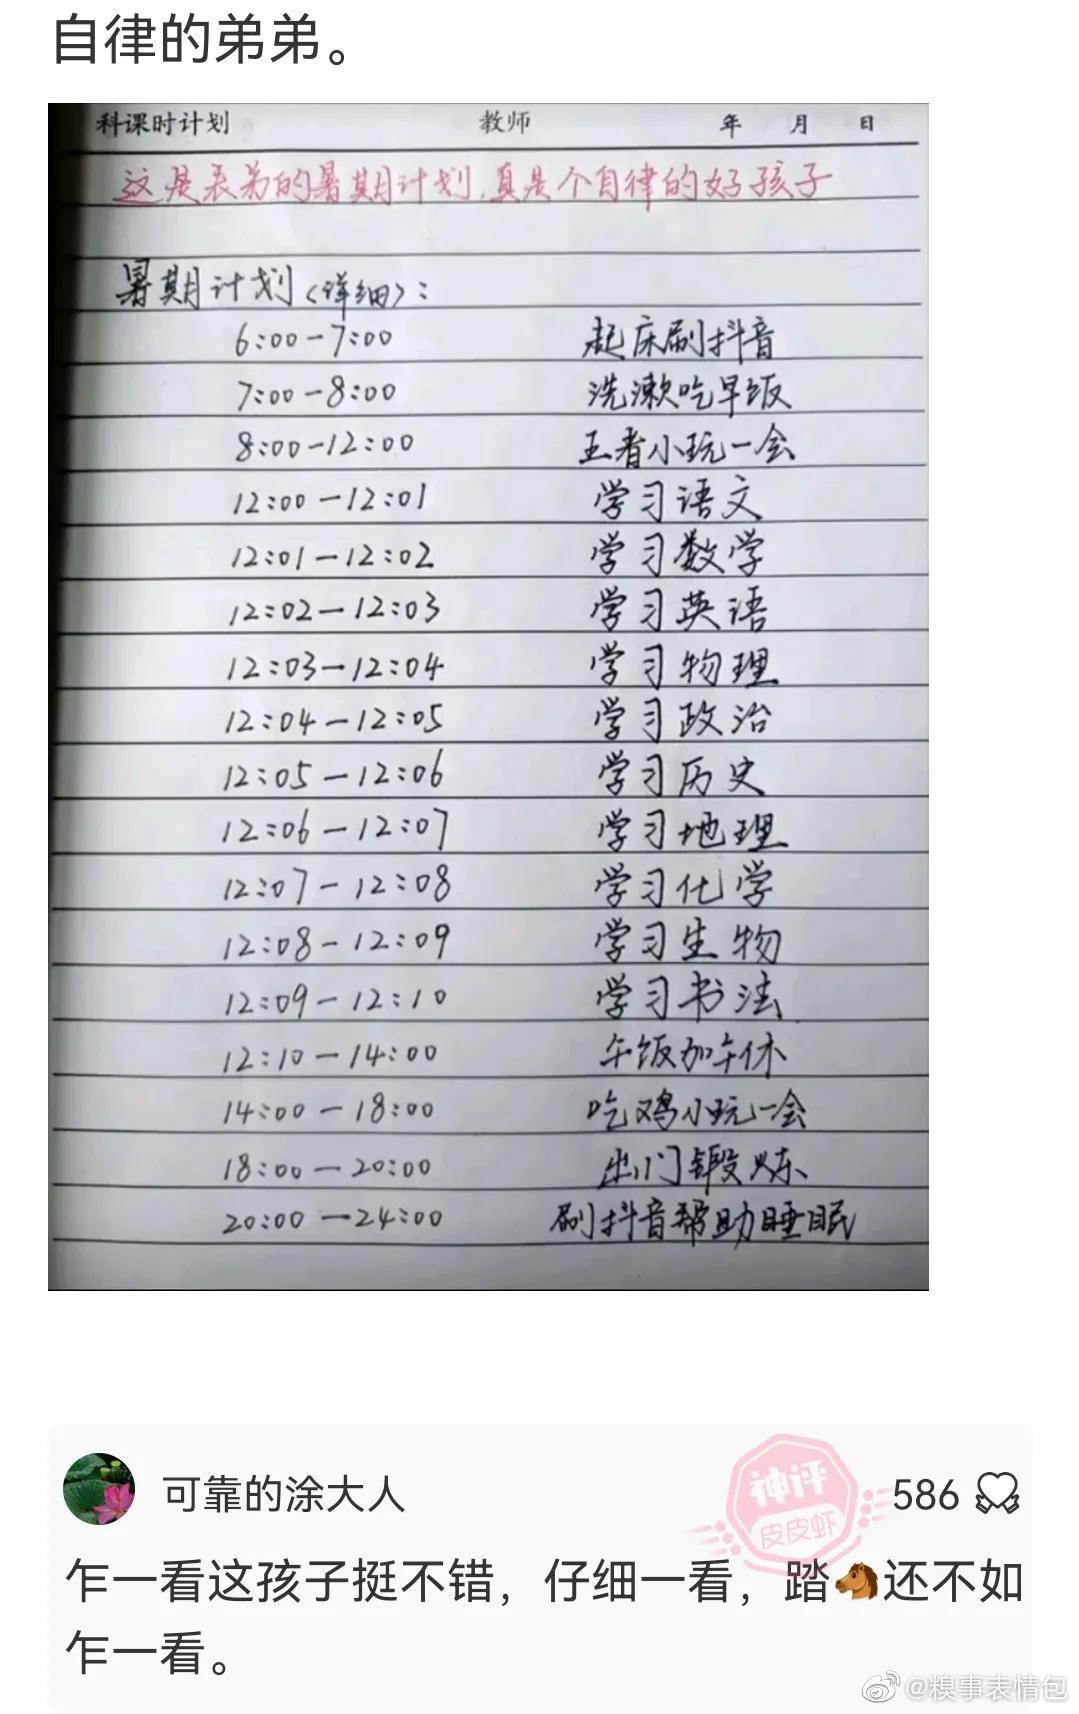 自律的弟弟。
科课时计划 教师 年 月 日
这是表弟的暑期计划,真是个自律的好孩子
暑期计划(详细):
6:00-7:00 起床刷抖音
7:00-8:00 洗漱吃早饭
8:00-12:00 王者小玩一会
12:00-12:01 学习语文
12:01-12:02 学习数学
12:02-12:03 学习英语
12:03-12:04 学习物理
12:04-12:05 学习政治
12:05-12:06 学习历史
12:06-12:07 学习地理
12:07-12:08 学习化学
12:08-12:09 学习生物
12:09-12:10 学习书法
12:10-14:00 午饭加午休
14:00-18:00 吃鸡小玩一会
18:00-20:00 出门锻炼
20:00-24:00 刷抖音帮助睡眠
可靠的涂大人 神评 586
皮皮虾
乍一看这孩子挺不错，仔细一看，踏🐴还不如
乍一看。
@糗事表情包